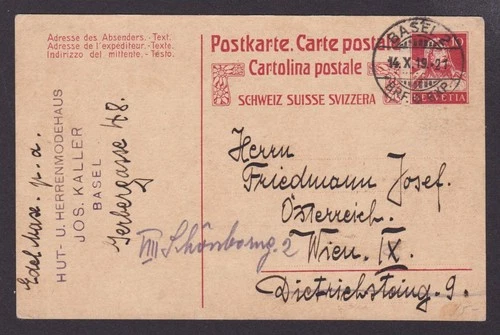 Adresse des Absenders.-Text.
Adresse de l'expediteur.-Texte.
Indirizzo del mittente.-Testo.
Postkarte. Carte postale
Cartolina postale
SCHWEIZ SUISSE SVIZZERA
BASEL
14.X.19
10
HELVETIA
Edel Max. p. a.
HUT- U. HERRENMODEHAUS
JOS. KALLER
BASEL
Gerbergasse 48.
Herrn
Friedmann Josef.
Österreich.
Wien. IX.
VIII Schönborng. 2
9.